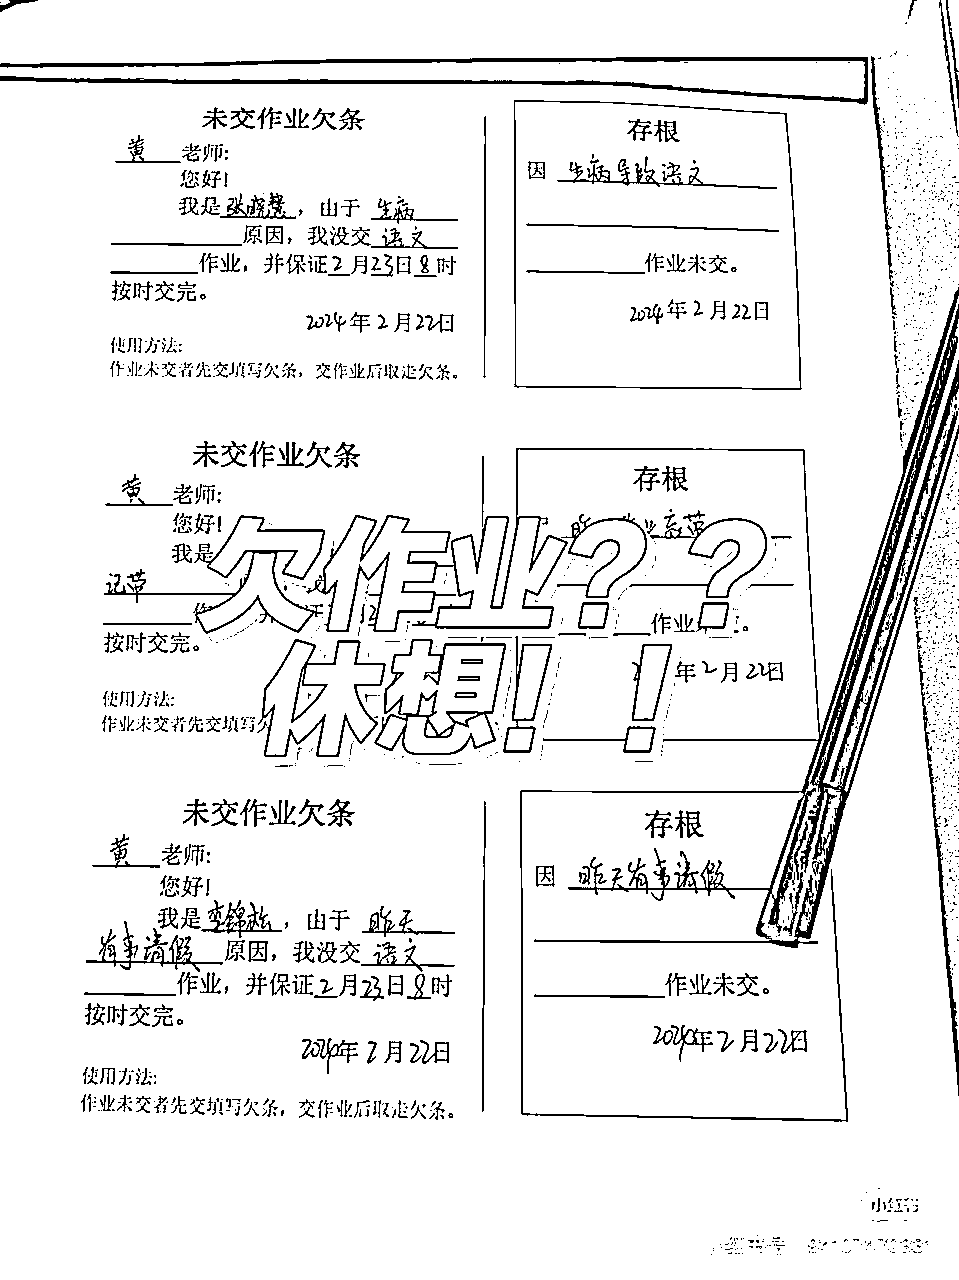 未交作业欠条
黄老师:
您好!
我是张晓慧，由于生病
原因，我没交语文
作业，并保证2月23日8时
按时交完。
2024年2月22日
使用方法:
作业未交者先交填写欠条，交作业后取走欠条。
存根
因 生病导致语文
作业未交。
2024年2月22日
未交作业欠条
黄老师:
您好!
我是
记带
按时交完。
使用方法:
作业未交者先交填写欠
存根
作业未
年2月22日
欠作业？？
休想！！
未交作业欠条
黄老师:
您好!
我是李锦，由于昨天
有事请假原因，我没交语文
作业，并保证2月23日8时
按时交完。
2024年2月22日
使用方法:
作业未交者先交填写欠条，交作业后取走欠条。
存根
因 昨天有事请假
作业未交。
2024年2月22日
小红书
小红书号